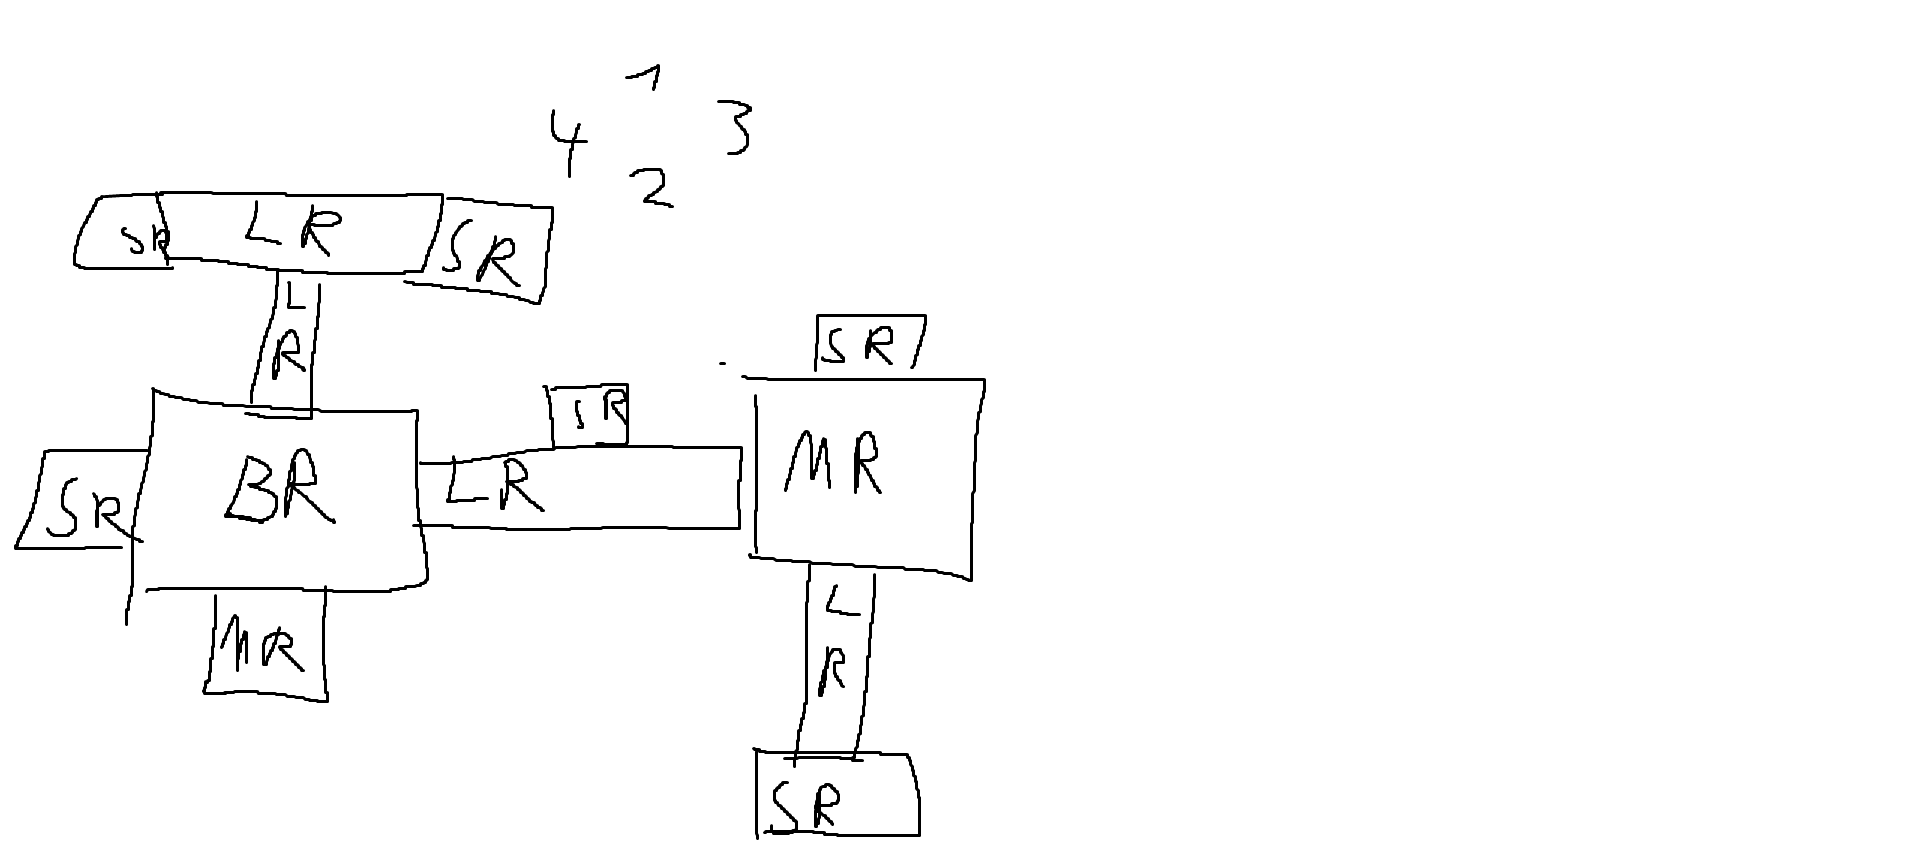 1
4 3
2
SR LR SR
L
R
SR
SR
BR LR MR
SR
MR
L
R
SR